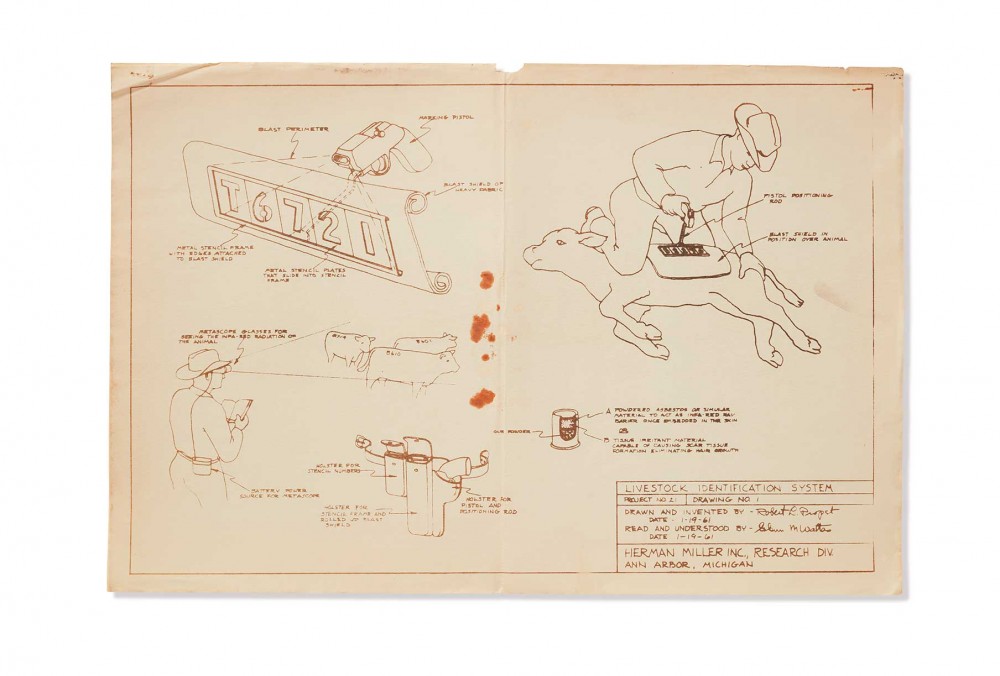 BLAST PERIMETER
MARKING PISTOL
BLAST SHIELD OF
HEAVY FABRIC
T6721
METAL STENCIL FRAME
WITH EDGES ATTACHED
TO BLAST SHIELD
METAL STENCIL PLATES
THAT SLIDE INTO STENCIL
FRAME
PISTOL POSITIONING
ROD
BLAST SHIELD IN
POSITION OVER ANIMAL
METASCOPE GLASSES FOR
SEEING THE INFA-RED RADIATION OF
THE ANIMAL
BATTERY POWER
SOURCE FOR METASCOPE
HOLSTER FOR
STENCIL NUMBERS
HOLSTER FOR
STENCIL FRAME AND
ROLLED UP BLAST
SHIELD
HOLSTER FOR
PISTOL AND
POSITIONING ROD
GUN POWDER
A POWDERED ASBESTOS OR SIMULAR
MATERIAL TO ACT AS INFA-RED RAY
BARRIER ONCE EMBEDDED IN THE SKIN
OR
B TISSUE IRRITANT MATERIAL
CAPABLE OF CAUSING SCAR TISSUE
FORMATION ELIMINATING HAIR GROWTH
LIVESTOCK IDENTIFICATION SYSTEM
PROJECT NO. 21 DRAWING NO. 1
DRAWN AND INVENTED BY - Robert L. Propst
DATE 1-19-61
READ AND UNDERSTOOD BY - Glenn M Walters
DATE 1-19-61
HERMAN MILLER INC., RESEARCH DIV.
ANN ARBOR, MICHIGAN